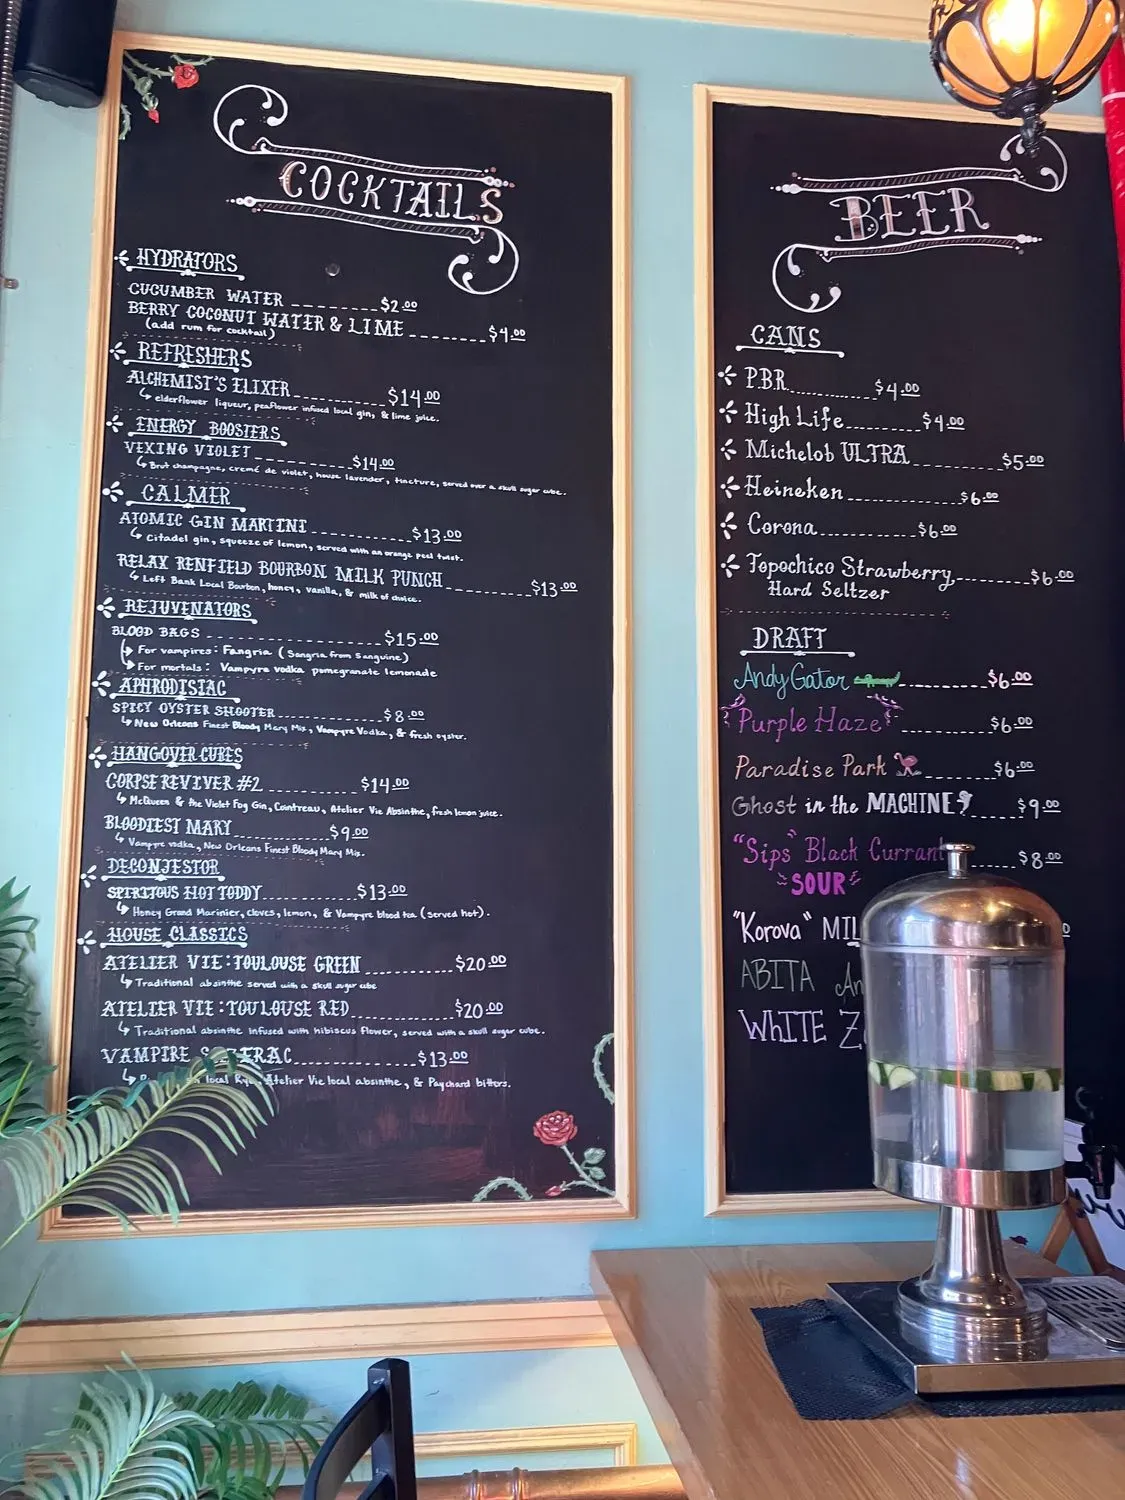 COCKTAILS
HYDRATORS
CUCUMBER WATER ---------$2.00
BERRY COCONUT WATER & LIME --------$4.00
(add rum for cocktail)
REFRESHERS
ALCHEMIST'S ELIXER------------$14.00
elderflower liqueur, peaflower infused local gin, & lime juice.
ENERGY BOOSTERS
VEXING VIOLET----------$14.00
Brut champagne, cremé de violet, house lavender, tincture, served over a skull sugar cube.
CALMER
ATOMIC GIN MARTINI-----------$13.00
Citadel gin, squeeze of lemon, served with an orange peel twist.
RELAX RENFIELD BOURBON MILK PUNCH---------$13.00
Left Bank Local Bourbon, honey, vanilla, & milk of choice.
REJUVENATORS
BLOOD BAGS------------------$15.00
For vampires: Fangria (Sangria from Sanguine)
For mortals: Vampyre vodka pomegranate lemonade
APHRODISIAC
SPICY OYSTER SHOOTER-------------$8.00
New Orleans Finest Bloody Mary Mix, Vampyre Vodka, & fresh oyster.
HANGOVER CURES
CORPSE REVIVER #2-----------$14.00
McQueen & the Violet Fog Gin, Cointreau, Atelier Vie Absinthe, fresh lemon juice.
BLOODIEST MARY-----------$9.00
Vampyre vodka, New Orleans Finest Bloody Mary Mix.
DECONJESTOR
SPIRITOUS HOT TODDY-----------$13.00
Honey Grand Marinier, cloves, lemon, & Vampyre blood tea (served hot).
HOUSE CLASSICS
ATELIER VIE:TOULOUSE GREEN----------$20.00
Traditional absinthe served with a skull sugar cube
ATELIER VIE:TOULOUSE RED------------$20.00
Traditional absinthe infused with hibiscus flower, served with a skull sugar cube.
VAMPIRE SAZERAC--------------$13.00
local Rye, Atelier Vie local absinthe, & Paychard bitters.
BEER
CANS
P.B.R.-----------$4.00
High Life----------$4.00
Michelob ULTRA-----------$5.00
Heineken--------------$6.00
Corona------------$6.00
Topochico Strawberry---------$6.00
Hard Seltzer
DRAFT
Andy Gator----------$6.00
Purple Haze-----------$6.00
Paradise Park---------$6.00
Ghost in the MACHINE------$9.00
"Sips" Black Currant-----$8.00
SOUR
"Korova"
ABITA
WhITE